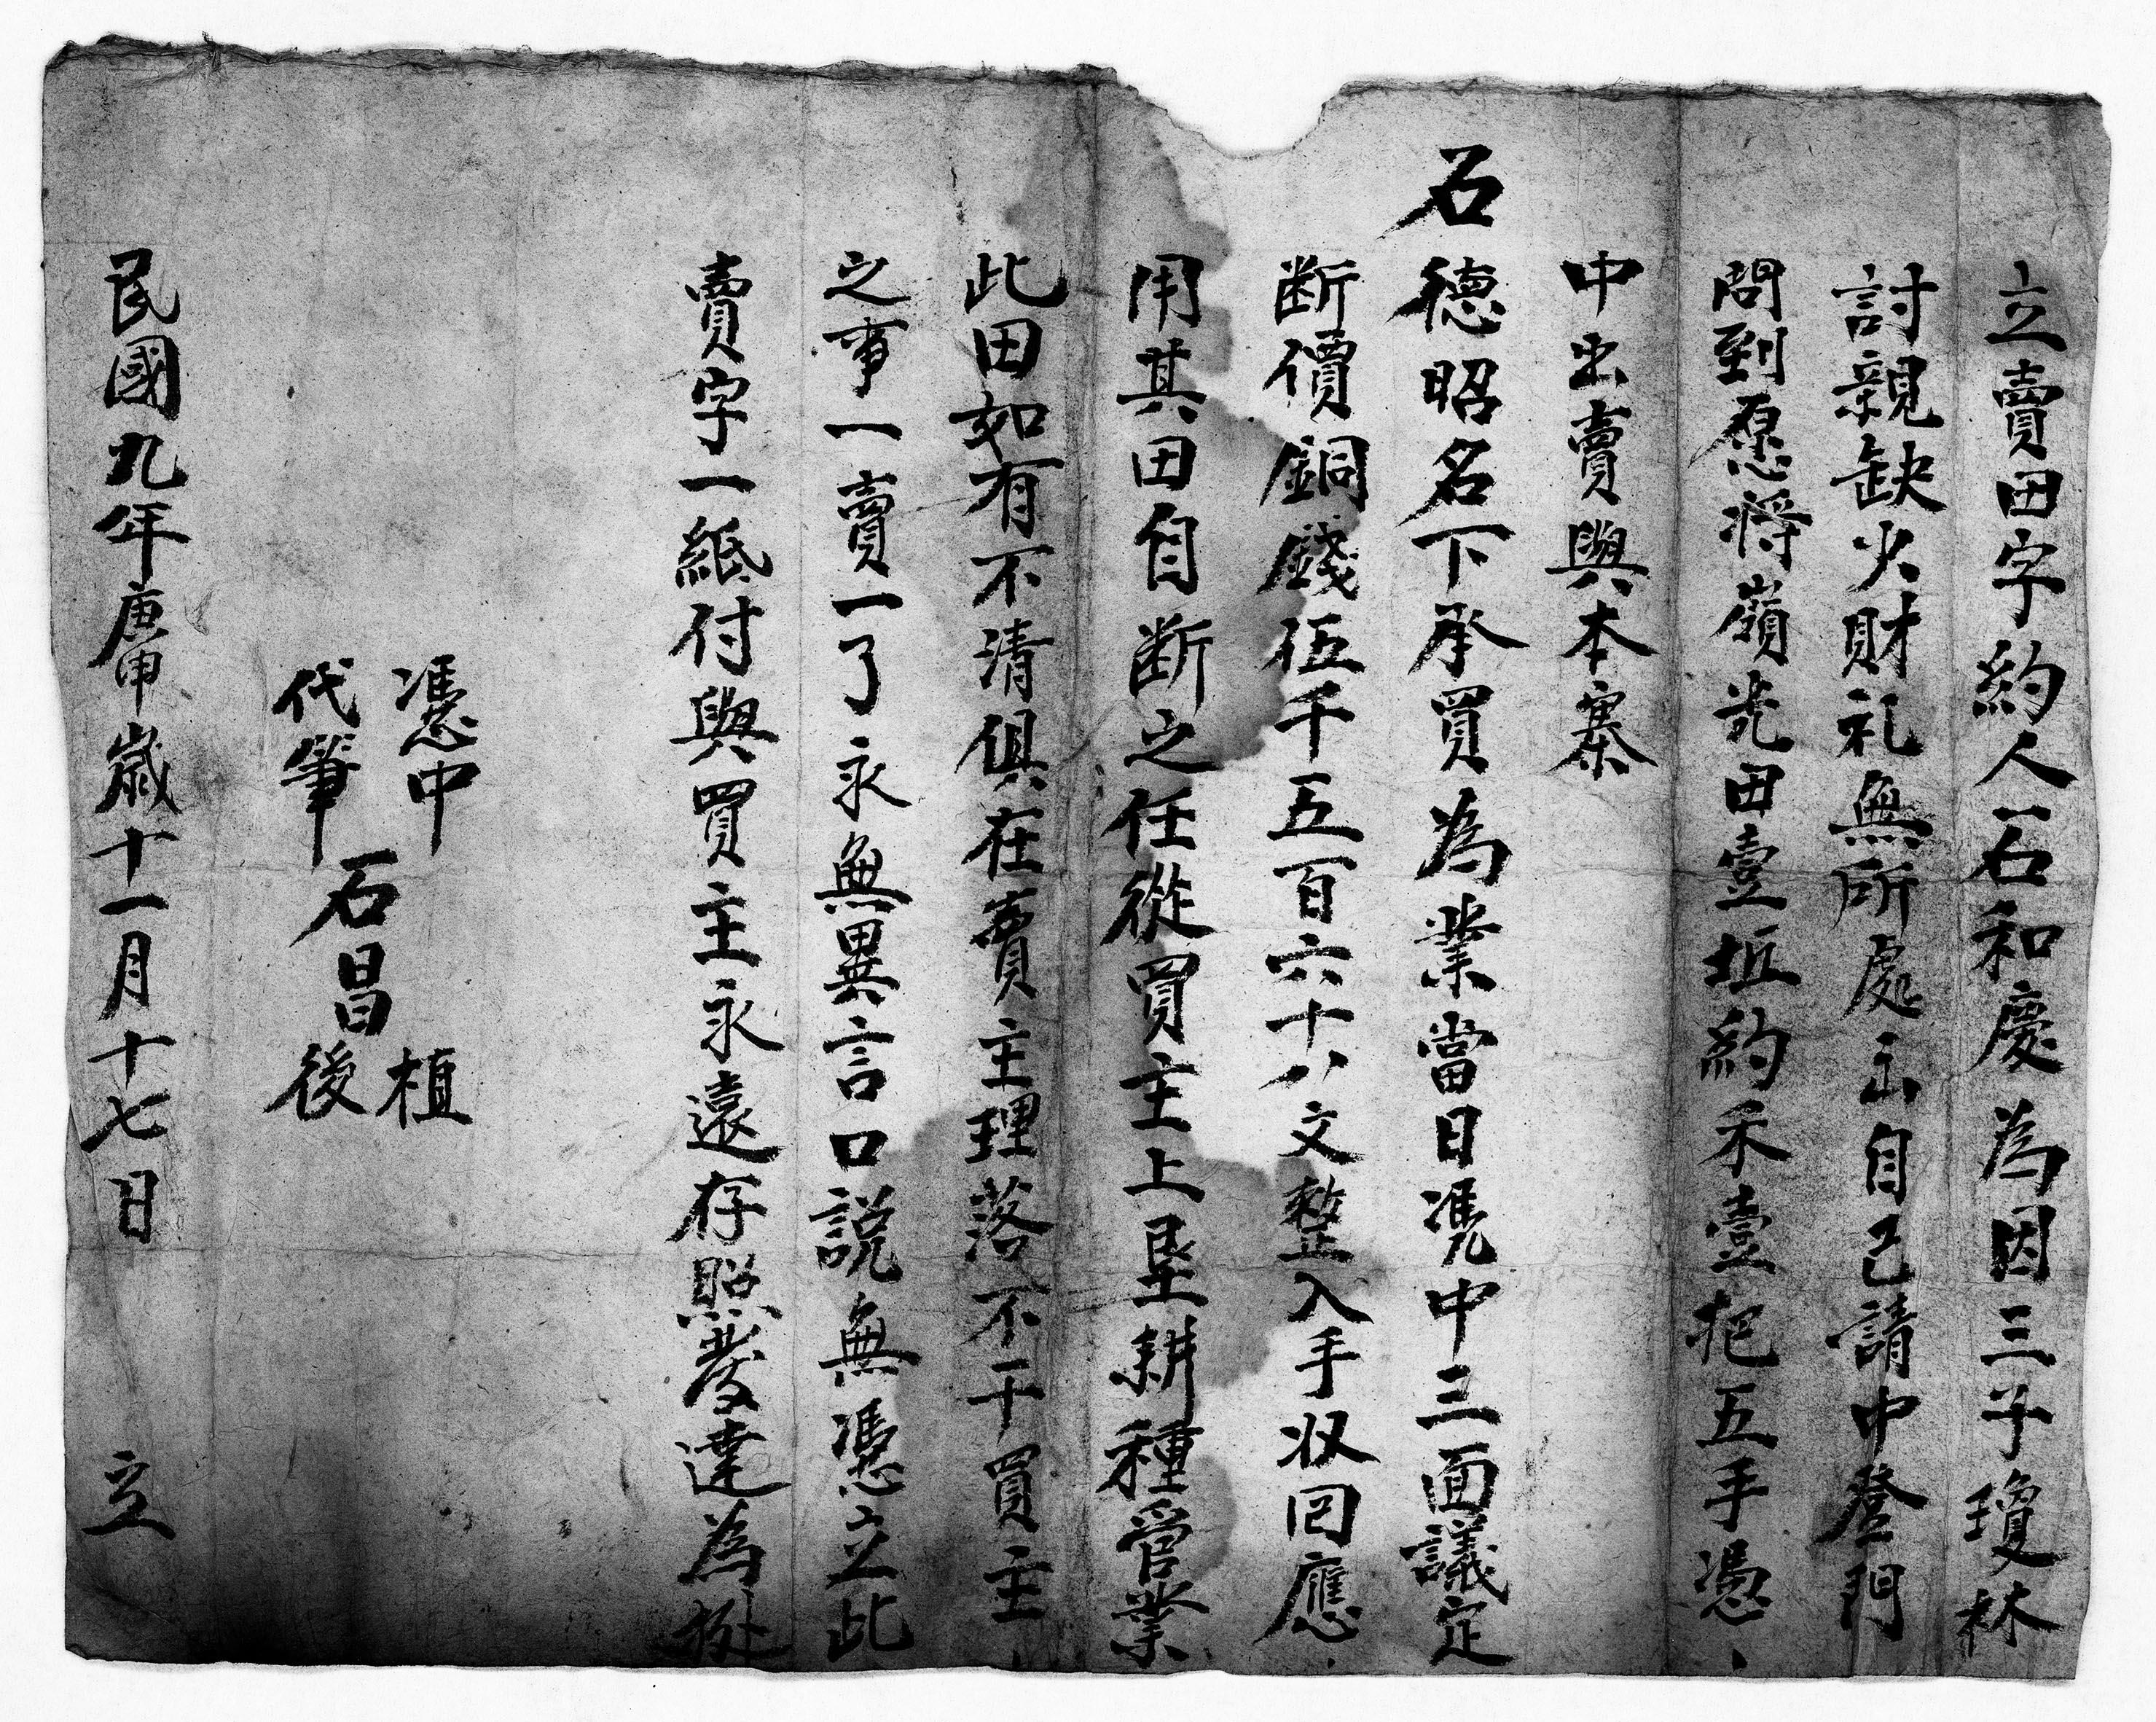 立賣田字約人石和慶為因三子瓊林
討親缺火財礼無所處出自己請中登門
問到愿將嶺光田壹坵約禾壹把五手憑
中出賣與本寨
石德昭名下承買為業當日憑中三面議定
断價銅錢伍千五百六十八文整入手収回應
用其田自断之任從買主上垦耕種營業
此田如有不清俱在賣主理落不干買主
之事一賣一了永無異言口説無憑立此
賣字一紙付與買主永遠存照發達為據
憑中 石昌植
代筆 石昌後
民國九年庚申歲十一月十七日 立